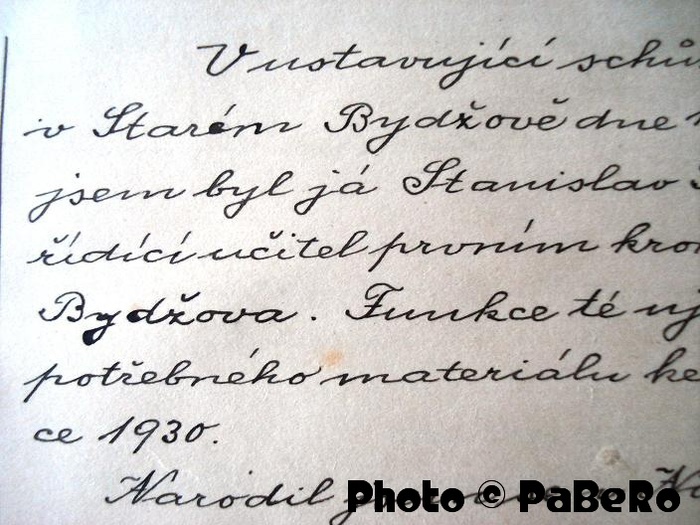 V ustavující schů
v Starém Bydžově dne
jsem byl já Stanislav
řídící učitel prvním kro
Bydžova. Funkce té uj
potřebného materiálu ke
ce 1930.
Narodil
Photo © PaBeRo